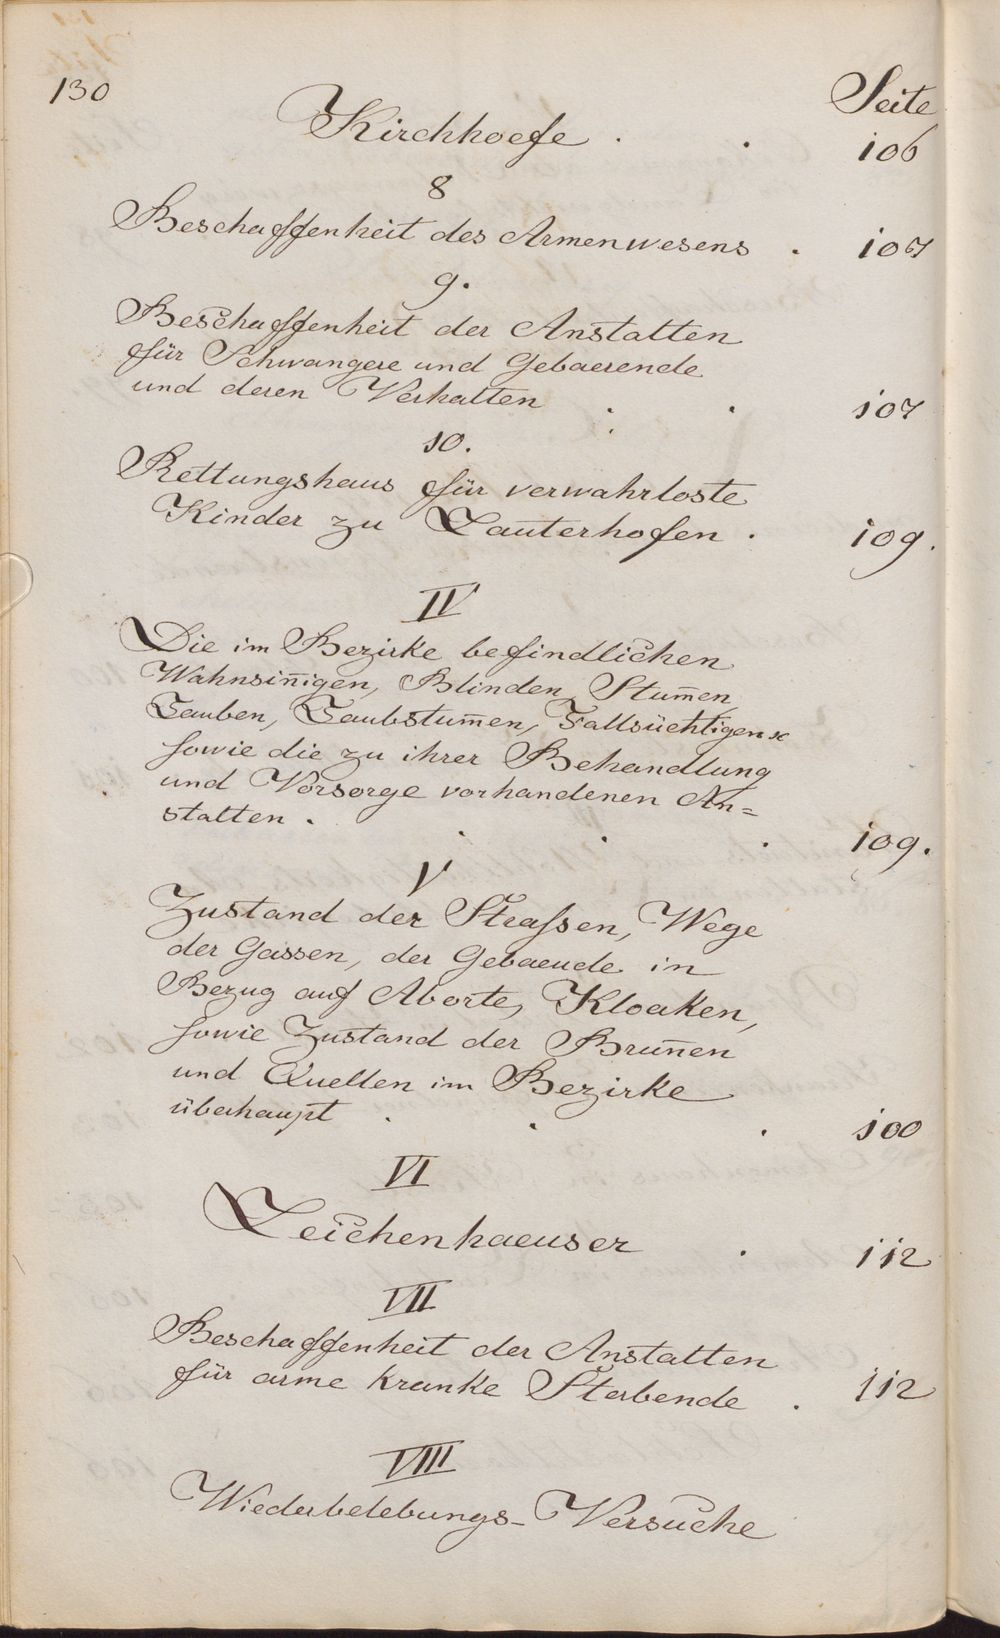 130
Seite
Kirchhoefe . . 106
8
Beschaffenheit des Armenwesens . 107
9.
Beschaffenheit der Anstalten
für Schwangere und Gebaerende
und deren Verhalten . . 107
10.
Rettungshaus für verwahrloste
Kinder zu Lauterhofen . 109.
IV
Die im Bezirke befindlichen
Wahnsin̅igen, Blinden, Stum̅en,
Tauben, Taubstum̅en, Fallsüchtigen
sowie die zu ihrer Behandlung
und Vorsorge vorhandenen An=
stalten . . . . 109.
V
Zustand der Strassen, Wege
der Gassen, der Gebaeude in
Bezug auf Aborte, Kloaken,
sowie Zustand der Brun̅en
und Quellen im Bezirke
überhaupt . . . 100
VI
Leichenhaeuser . 112
VII
Beschaffenheit der Anstalten
für arme kranke Sterbende . 112
VIII
Wiederbelebungs-Versuche